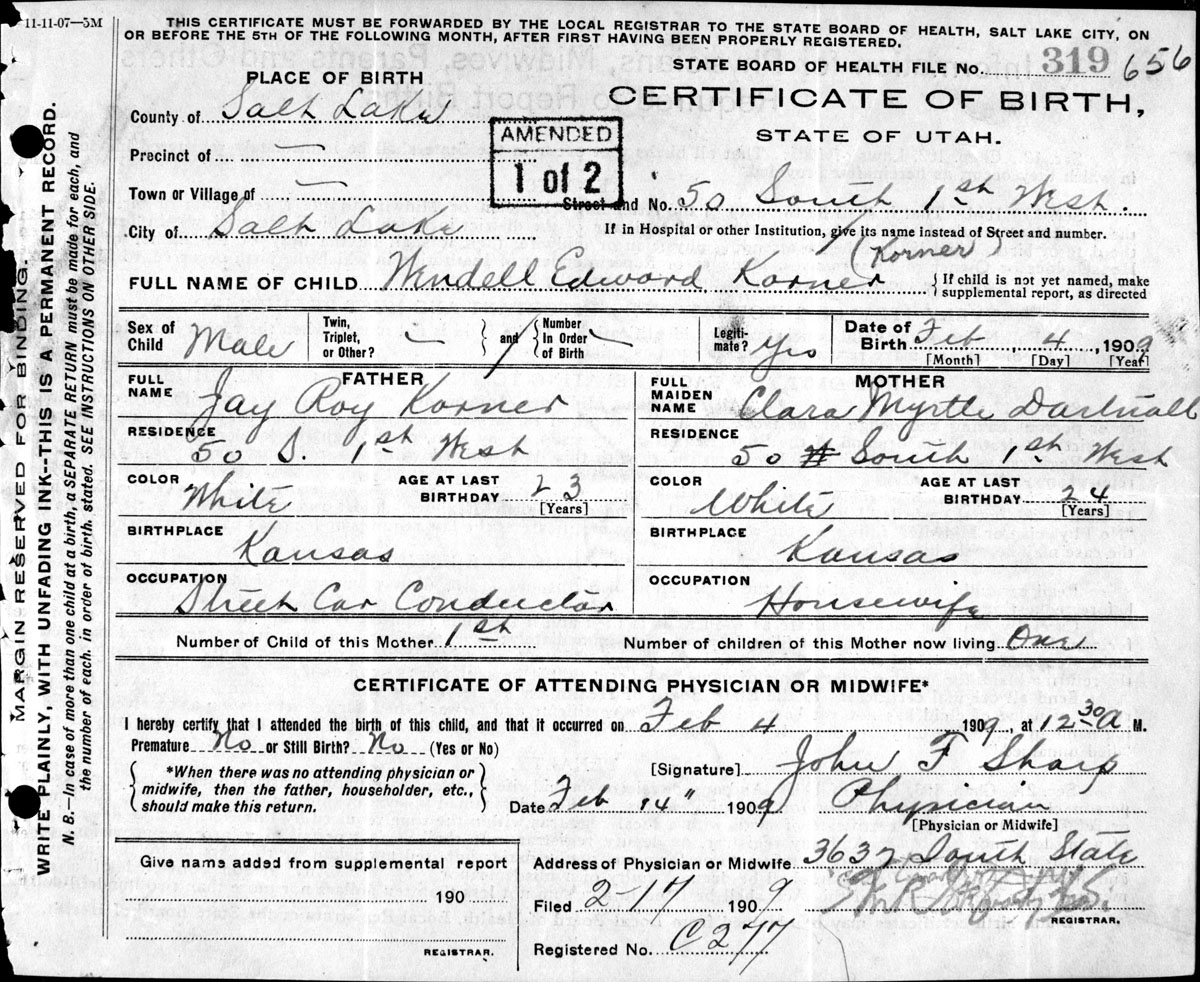 11-11-07—5M
THIS CERTIFICATE MUST BE FORWARDED BY THE LOCAL REGISTRAR TO THE STATE BOARD OF HEALTH, SALT LAKE CITY, ON
OR BEFORE THE 5TH OF THE FOLLOWING MONTH, AFTER FIRST HAVING BEEN PROPERLY REGISTERED.
STATE BOARD OF HEALTH FILE No. 319 656
PLACE OF BIRTH
CERTIFICATE OF BIRTH,
STATE OF UTAH.
County of Salt Lake
AMENDED
1 of 2
Precinct of —
Town or Village of —
Street and No. 50 South 1st West.
City of Salt Lake
If in Hospital or other Institution, give its name instead of Street and number.
(Korner)
FULL NAME OF CHILD Wendell Edward Korner
{ If child is not yet named, make
supplemental report, as directed
Sex of Child Male
Twin, Triplet, or Other? — } and { Number In Order of Birth —
Legiti-mate? Yes
Date of Birth Feb 4, 1909
[Month] [Day] [Year]
FATHER
FULL NAME Jay Roy Korner
MOTHER
FULL MAIDEN NAME Clara Myrtle Dartnall
RESIDENCE 50 S. 1st West
RESIDENCE 50 South 1st West
COLOR White AGE AT LAST BIRTHDAY 23 [Years]
COLOR White AGE AT LAST BIRTHDAY 24 [Years]
BIRTHPLACE Kansas
BIRTHPLACE Kansas
OCCUPATION Street Car Conductor
OCCUPATION Housewife
Number of Child of this Mother 1st Number of children of this Mother now living One
CERTIFICATE OF ATTENDING PHYSICIAN OR MIDWIFE*
I hereby certify that I attended the birth of this child, and that it occurred on Feb 4 1909, at 12 30 A M.
Premature No or Still Birth? No (Yes or No)
{ *When there was no attending physician or
midwife, then the father, householder, etc.,
should make this return. }
[Signature] John F Sharp
Date Feb 14" 1909 Physician
[Physician or Midwife]
Give name added from supplemental report
190
REGISTRAR.
Address of Physician or Midwife 3632 South State
Filed 2-17 1909
REGISTRAR.
Registered No. C277
MARGIN RESERVED FOR BINDING.
WRITE PLAINLY, WITH UNFADING INK--THIS IS A PERMANENT RECORD.
N. B.—In case of more than one child at a birth, a SEPARATE RETURN must be made for each, and
the number of each, in order of birth, stated. SEE INSTRUCTIONS ON OTHER SIDE.